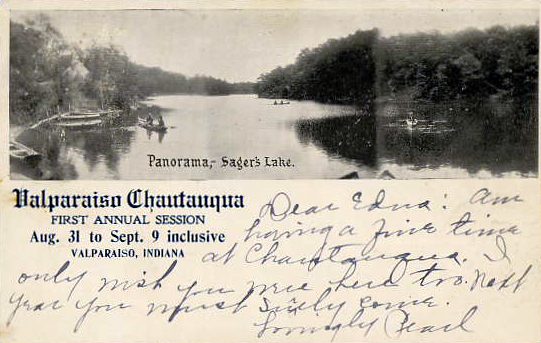 Panorama,- Sager's Lake.
Valparaiso Chautauqua
FIRST ANNUAL SESSION
Aug. 31 to Sept. 9 inclusive
VALPARAISO, INDIANA
Dear Edna: Am
having a fine time
at Chautauqua. I
only wish you were here too. Next
year you must surely come.
Lovingly Pearl